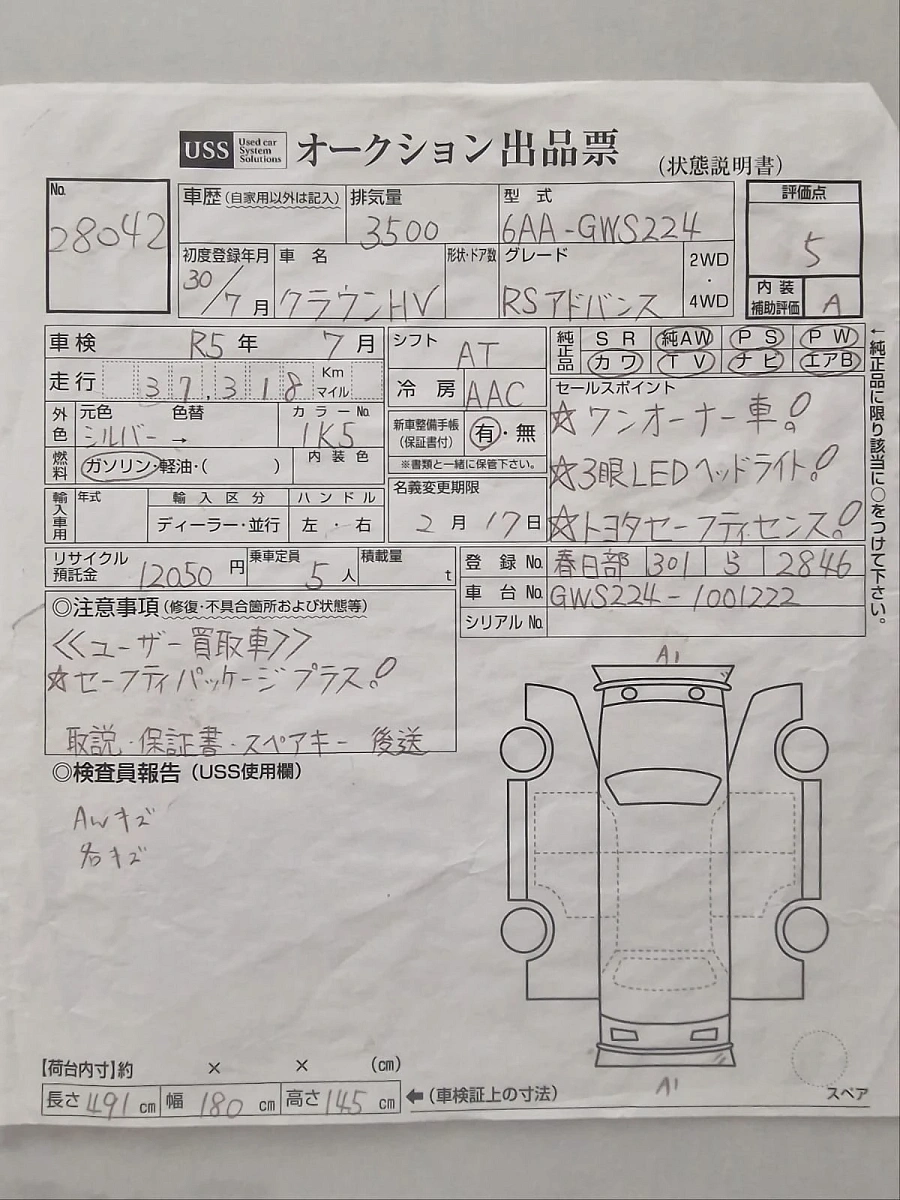 USS Used car System Solutions オークション出品票 (状態説明書)
No. 28042
車歴 (自家用以外は記入) 排気量 3500 型式 6AA-GWS224 評価点 5
初度登録年月 30/7月 車名 クラウンHV 形状・ドア数 グレード RSアドバンス 2WD・4WD 内装補助評価 A
車検 R5年 7月 シフト AT 純正品 SR 純AW PS PW
カワ TV ナビ エアB
走行 37,318 Km マイル 冷房 AAC セールスポイント
外色 元色 シルバー 色替 → カラーNo. 1K5 新車整備手帳(保証書付) 有・無 ☆ワンオーナー車!
燃料 ガソリン・軽油・( ) 内装色 ※書類と一緒に保管下さい。 ☆3眼LEDヘッドライト!
輸入車用 年式 輸入区分 ディーラー・並行 ハンドル 左・右 名義変更期限 2月17日 ☆トヨタセーフティセンス!
←純正品に限り該当に○をつけて下さい。
リサイクル預託金 12050円 乗車定員 5人 積載量 t 登録No. 春日部 301 ら 2846
車台No. GWS224-1001222
シリアルNo.
◎注意事項 (修復・不具合箇所および状態等)
<<ユーザー買取車>>
☆セーフティパッケージプラス!
取説・保証書・スペアキー 後送
◎検査員報告 (USS使用欄)
AWキズ
名キズ
A1
A1
スペア
【荷台内寸】約 × × (cm)
長さ 491 cm 幅 180 cm 高さ 145 cm ←(車検証上の寸法)